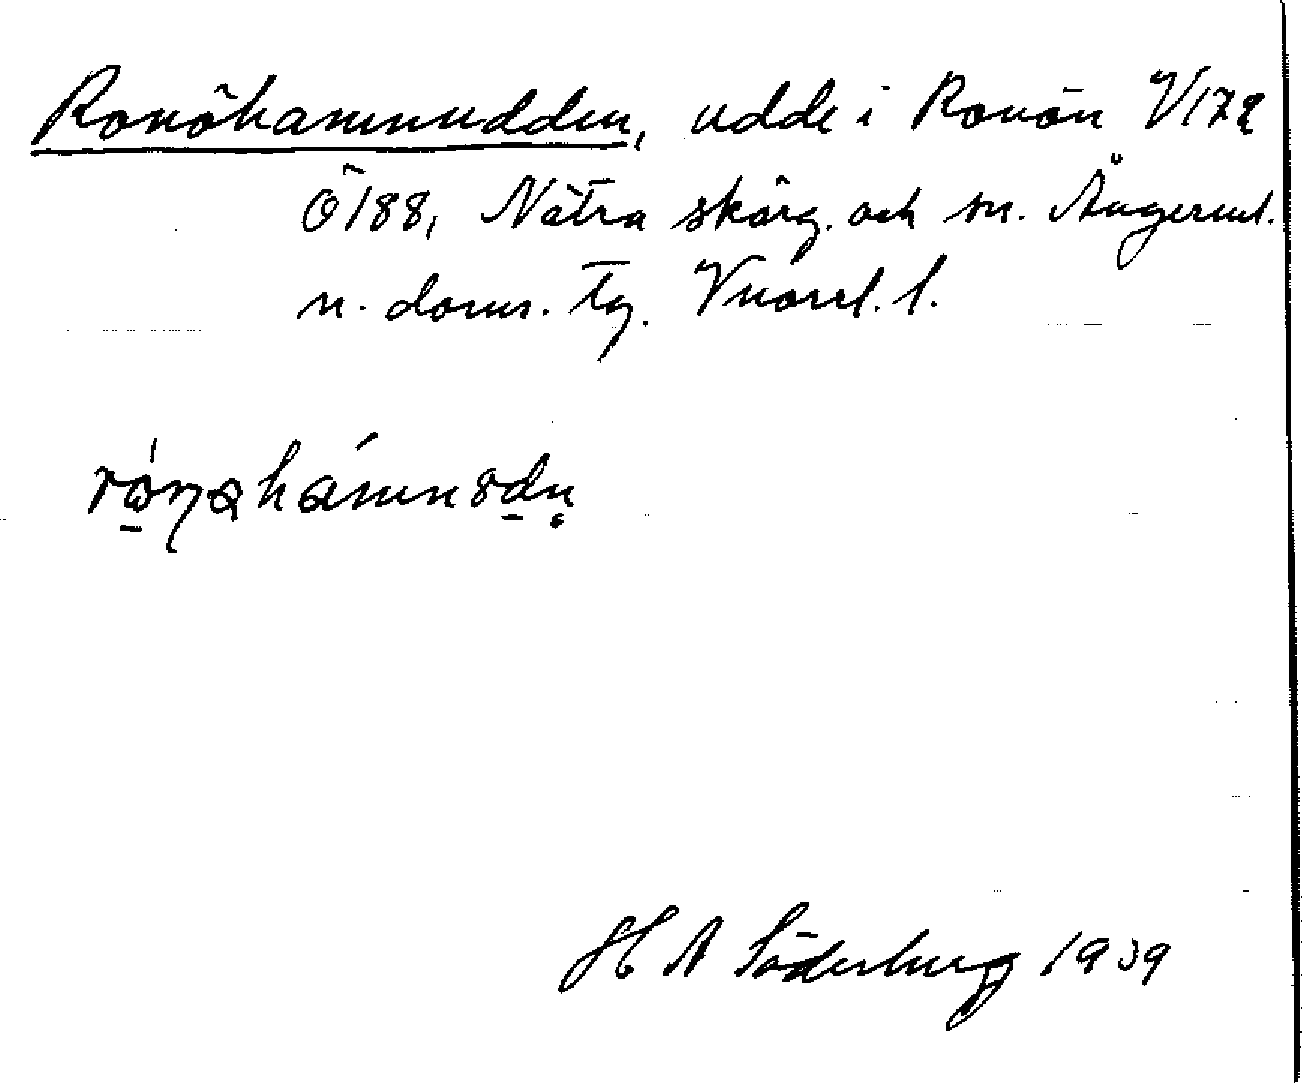 Ronöhamnudden, udde i Ronön V172
Ö188, Nätra skärg. och sn. Ångerml.
n. doms. tg. Vnorrl. l.
H A Söderberg 1939